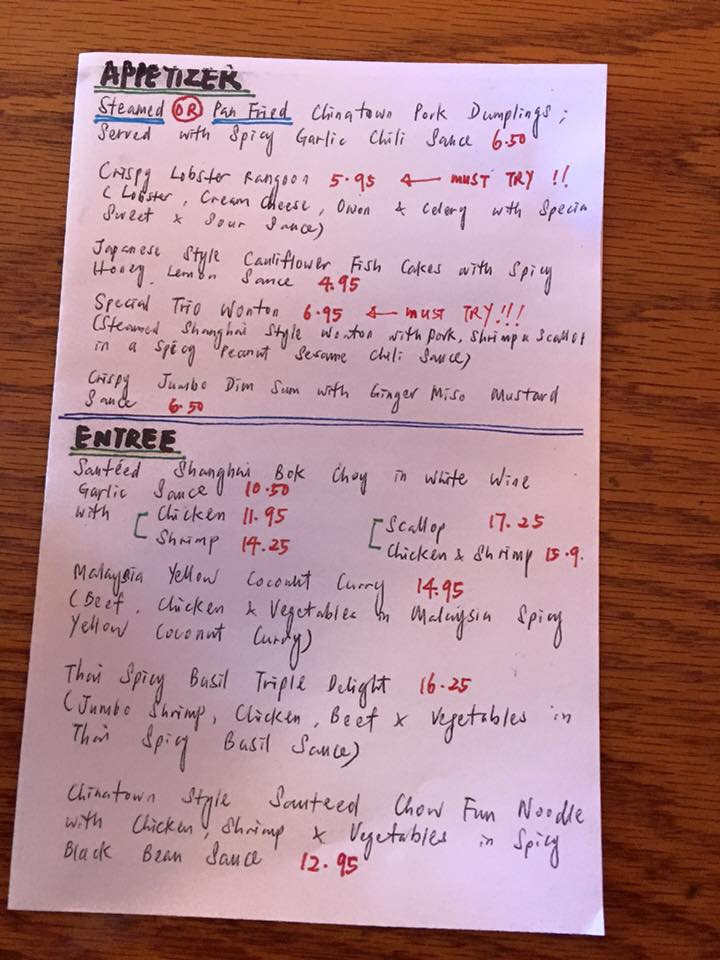 APPETIZER
Steamed OR Pan Fried Chinatown Pork Dumplings;
Served with Spicy Garlic Chili Sauce 6.50
Crispy Lobster Rangoon 5.95 ← MUST TRY !!
(Lobster, Cream Cheese, Onion & Celery with Specia
Sweet & Sour Sauce)
Japanese Style Cauliflower Fish Cakes with Spicy
Honey Lemon Sauce 4.95
Special Trio Wonton 6.95 ← MUST TRY!!!
(Steamed Shanghai Style Wonton with Pork, Shrimp & Scallop
in a Spicy Peanut Sesame Chili Sauce)
Crispy Jumbo Dim Sum with Ginger Miso Mustard
Sauce 6.50
ENTREE
Sautéed Shanghai Bok Choy in White Wine
Garlic Sauce 10.50
with [ Chicken 11.95 [ Scallop 17.25
Shrimp 14.25 Chicken & Shrimp 15.9
Malaysia Yellow Coconut Curry 14.95
(Beef, Chicken & Vegetables in Malaysia Spicy
Yellow Coconut Curry)
Thai Spicy Basil Triple Delight 16.25
(Jumbo Shrimp, Chicken, Beef & Vegetables in
Thai Spicy Basil Sauce)
Chinatown Style Sauteed Chow Fun Noodle
with Chicken, Shrimp & Vegetables in Spicy
Black Bean Sauce 12.95